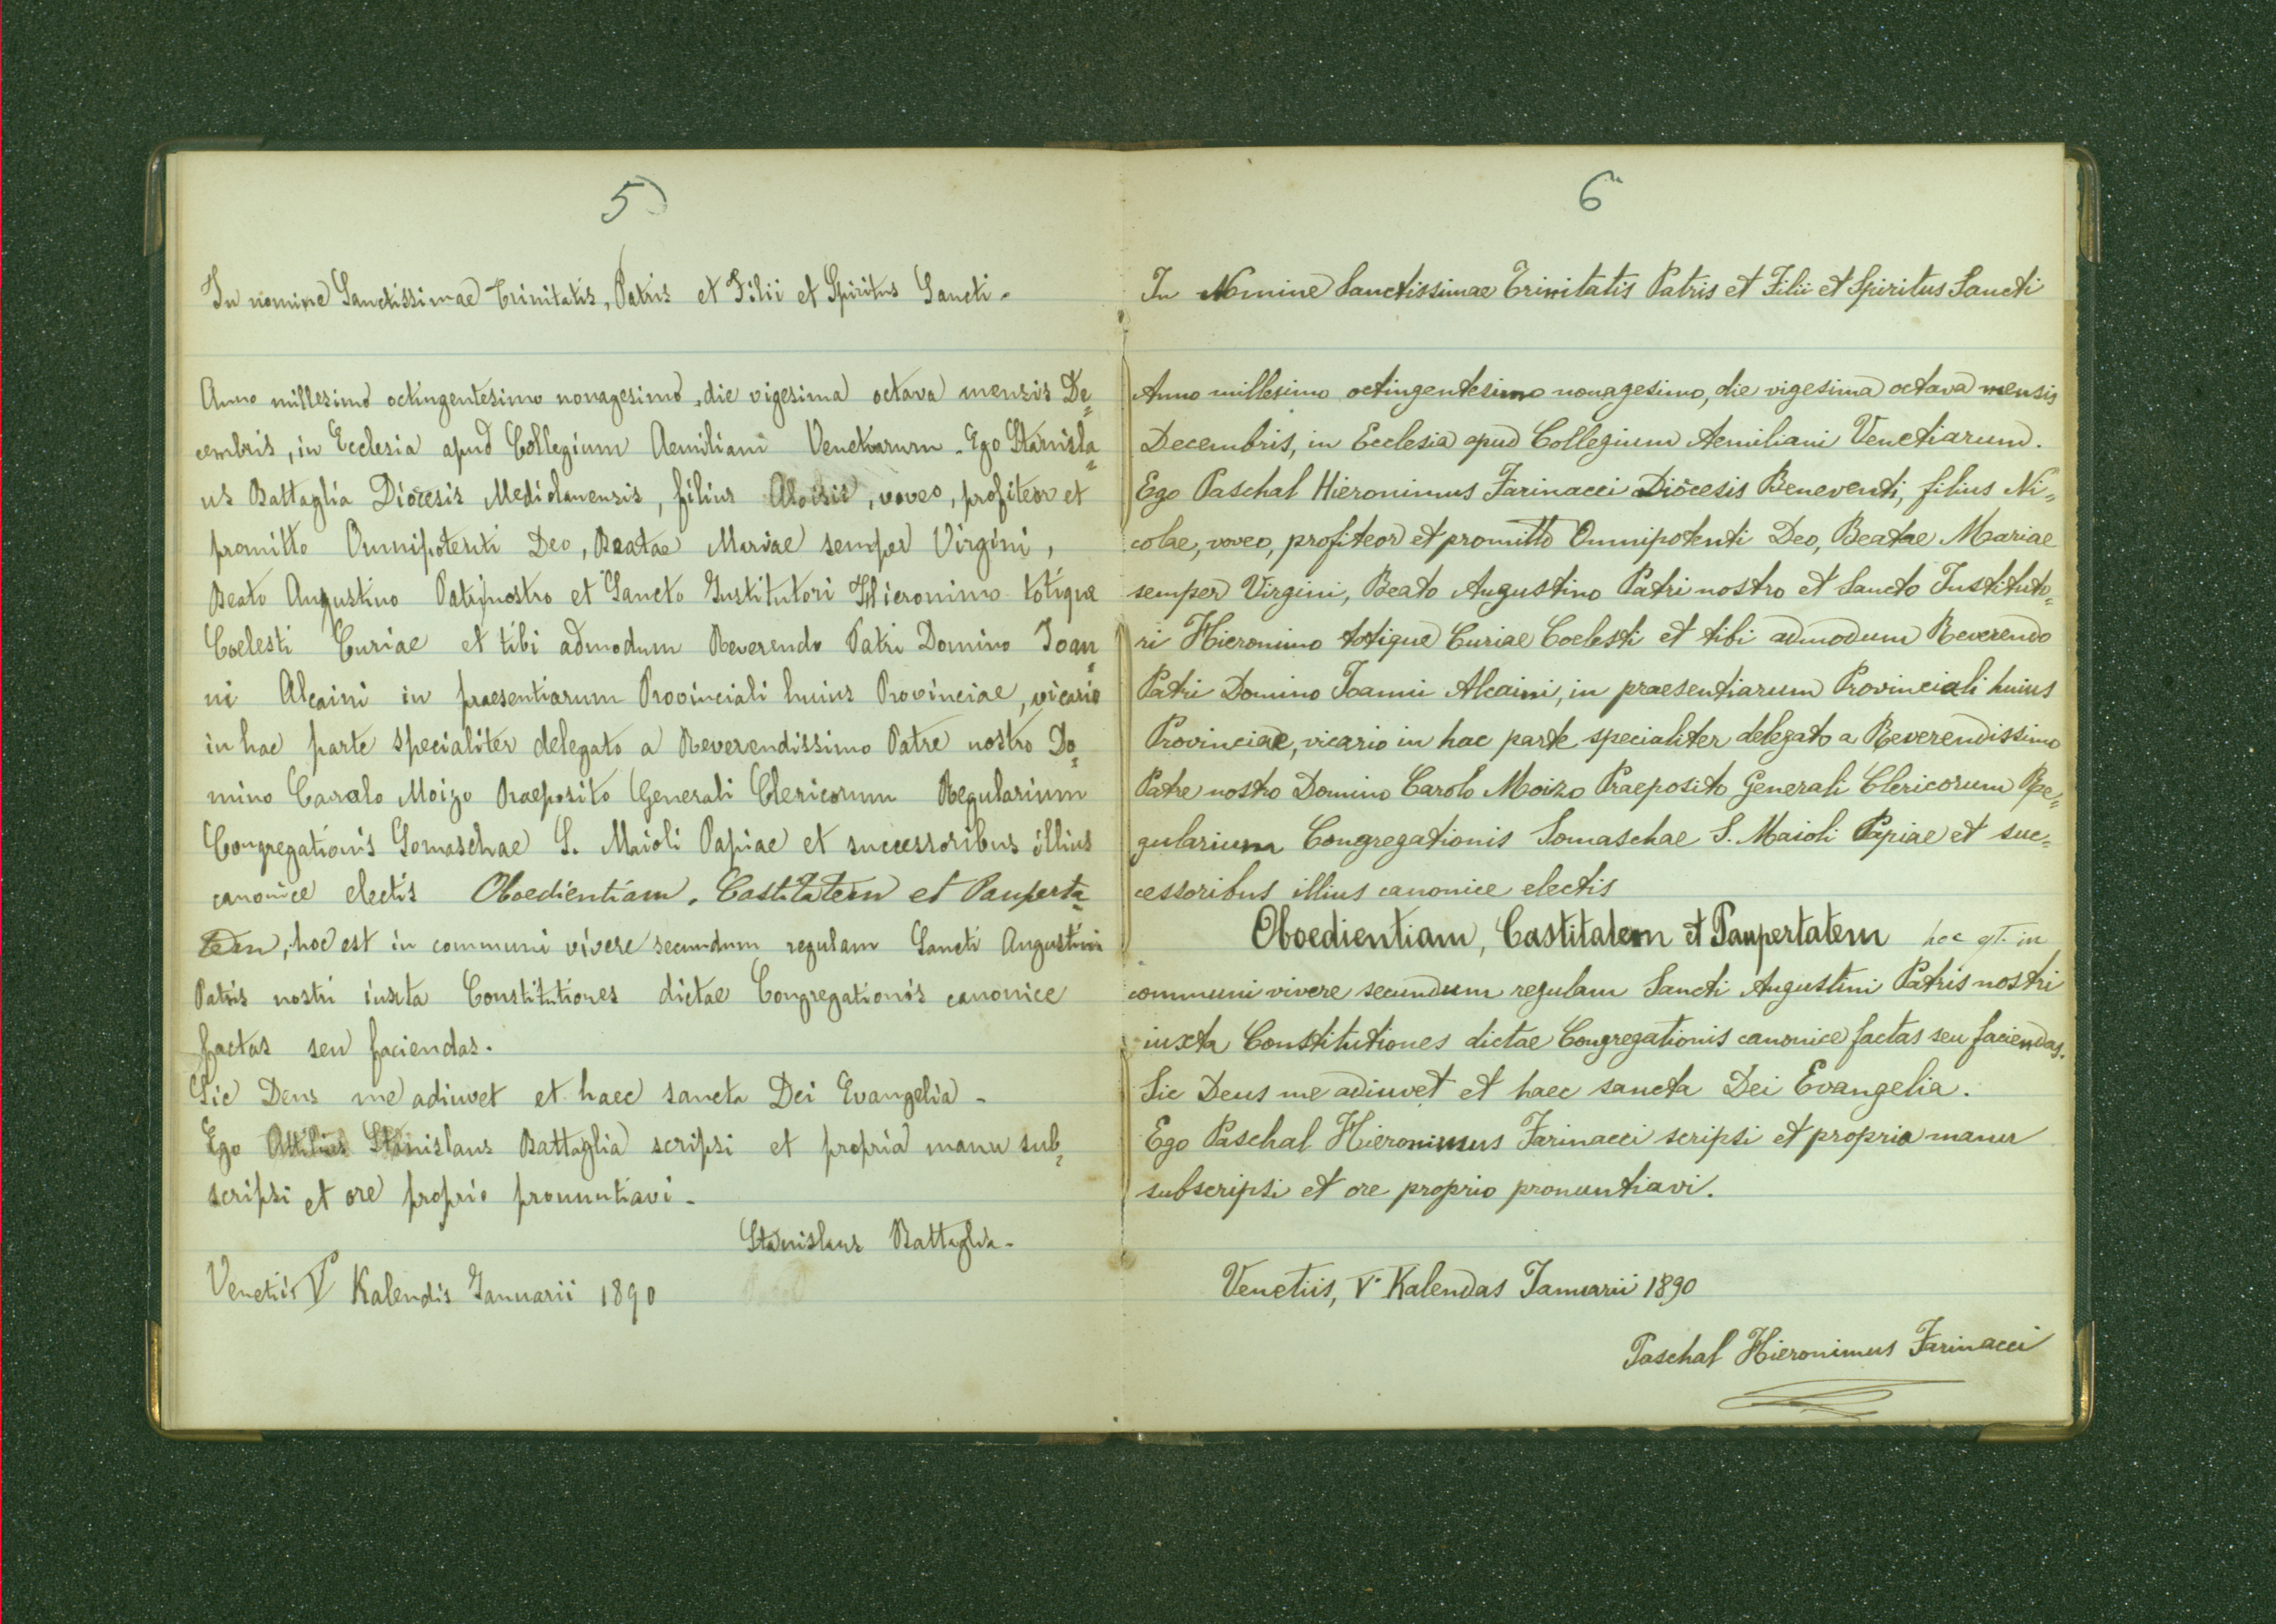 5
In nomine Sanctissimae Trinitatis, Patris et Filii et Spiritus Sancti.
Anno millesimo octingentesimo nonagesimo, die vigesima octava mensis De=
cembris, in Ecclesia apud Collegium Aemiliani Venetiarum. Ego Stanisla=
us Battaglia Diocesis Mediolanensis, filius Aloisii, voveo, profiteor et
promitto Omnipotenti Deo, Beatae Mariae semper Virgini,
Beato Augustino Patri nostro et Sancto Institutori Hieronimo totique
Coelesti Curiae et tibi admodum Reverendo Patri Domino Joan=
ni Alcaini in praesentiarum Provinciali huius Provinciae, vicario
in hac parte specialiter delegato a Reverendissimo Patre nostro Do=
mino Carolo Moizo Praeposito Generali Clericorum Regularium
Congregationis Somaschae S. Maioli Papiae et successoribus illius
canonice electis Oboedientiam, Castitatem et Pauperta=
tem, hoc est in communi vivere secundum regulam Sancti Augustini
Patris nostri iuxta Constitutiones dictae Congregationis canonice
factas seu faciendas.
Sic Deus me adiuvet et haec sancta Dei Evangelia.
Ego Attilius Stanislaus Battaglia scripsi et propria manu sub=
scripsi et ore proprio pronuntiavi.
Stanislaus Battaglia.
Venetiis V Kalendis Januarii 1890
6
In Nomine Sanctissimae Trinitatis Patris et Filii et Spiritus Sancti
Anno millesimo octingentesimo nonagesimo, die vigesima octava mensis
Decembris, in Ecclesia apud Collegium Aemiliani Venetiarum.
Ego Paschal Hieronimus Farinacci Diocesis Beneventi, filius Ni=
colae, voveo, profiteor et promitto Omnipotenti Deo, Beatae Mariae
semper Virgini, Beato Augustino Patri nostro et Sancto Instituto=
ri Hieronimo totique Curiae Coelesti et tibi admodum Reverendo
Patri Domino Joanni Alcaini, in praesentiarum Provinciali huius
Provinciae, vicario in hac parte specialiter delegato a Reverendissimo
Patre nostro Domino Carolo Moizo Praeposito Generali Clericorum Re=
gularium Congregationis Somaschae S. Maioli Papiae et suc=
cessoribus illius canonice electis
Oboedientiam, Castitatem et Paupertatem hoc est in
communi vivere secundum regulam Sancti Augustini Patris nostri
iuxta Constitutiones dictae Congregationis canonice factas seu faciendas.
Sic Deus me adiuvet et haec sancta Dei Evangelia.
Ego Paschal Hieronimus Farinacci scripsi et propria manu
subscripsi et ore proprio pronuntiavi.
Venetiis, V Kalendas Januarii 1890
Paschal Hieronimus Farinacci